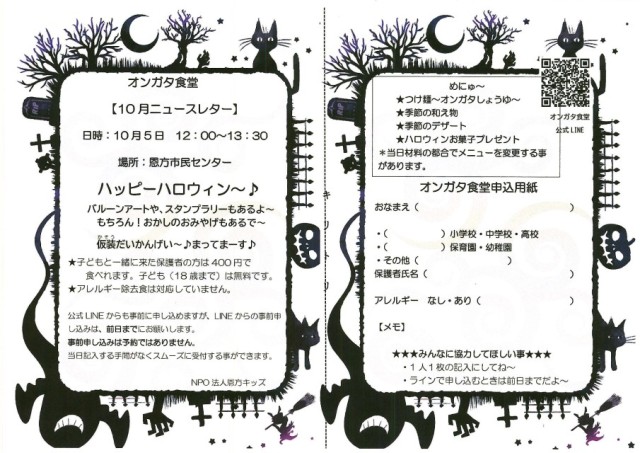 オンガタ食堂
【10月ニュースレター】
日時：10月5日 12：00～13：30
場所：恩方市民センター
ハッピーハロウィン～♪
バルーンアートや、スタンプラリーもあるよ～
もちろん！おかしのおみやげもあるで～
仮装だいかんげい～♪まってまーす♪
かそう
★子どもと一緒に来た保護者の方は400円で
食べれます。子ども（18歳まで）は無料です。
★アレルギー除去食は対応していません。
公式LINEからも事前に申し込めますが、LINEからの事前申
し込みは、前日までにお願いします。
事前申し込みは予約ではありません。
当日記入する手間がなくスムーズに受付する事ができます。
NPO法人恩方キッズ
キリトリ
めにゅ～
★つけ麺～オンガタしょうゆ～
★季節の和え物
★季節のデザート
★ハロウィンお菓子プレゼント
＊当日材料の都合でメニューを変更する事
があります。
オンガタ食堂
公式LINE
オンガタ食堂申込用紙
おなまえ（ ）
・（ ）小学校・中学校・高校
・（ ）保育園・幼稚園
・その他（ ）
保護者氏名（ ）
アレルギー なし・あり（ ）
【メモ】
★★★みんなに協力してほしい事★★★
・1人1枚の記入にしてね～
・ラインで申し込むときは前日までだよ～